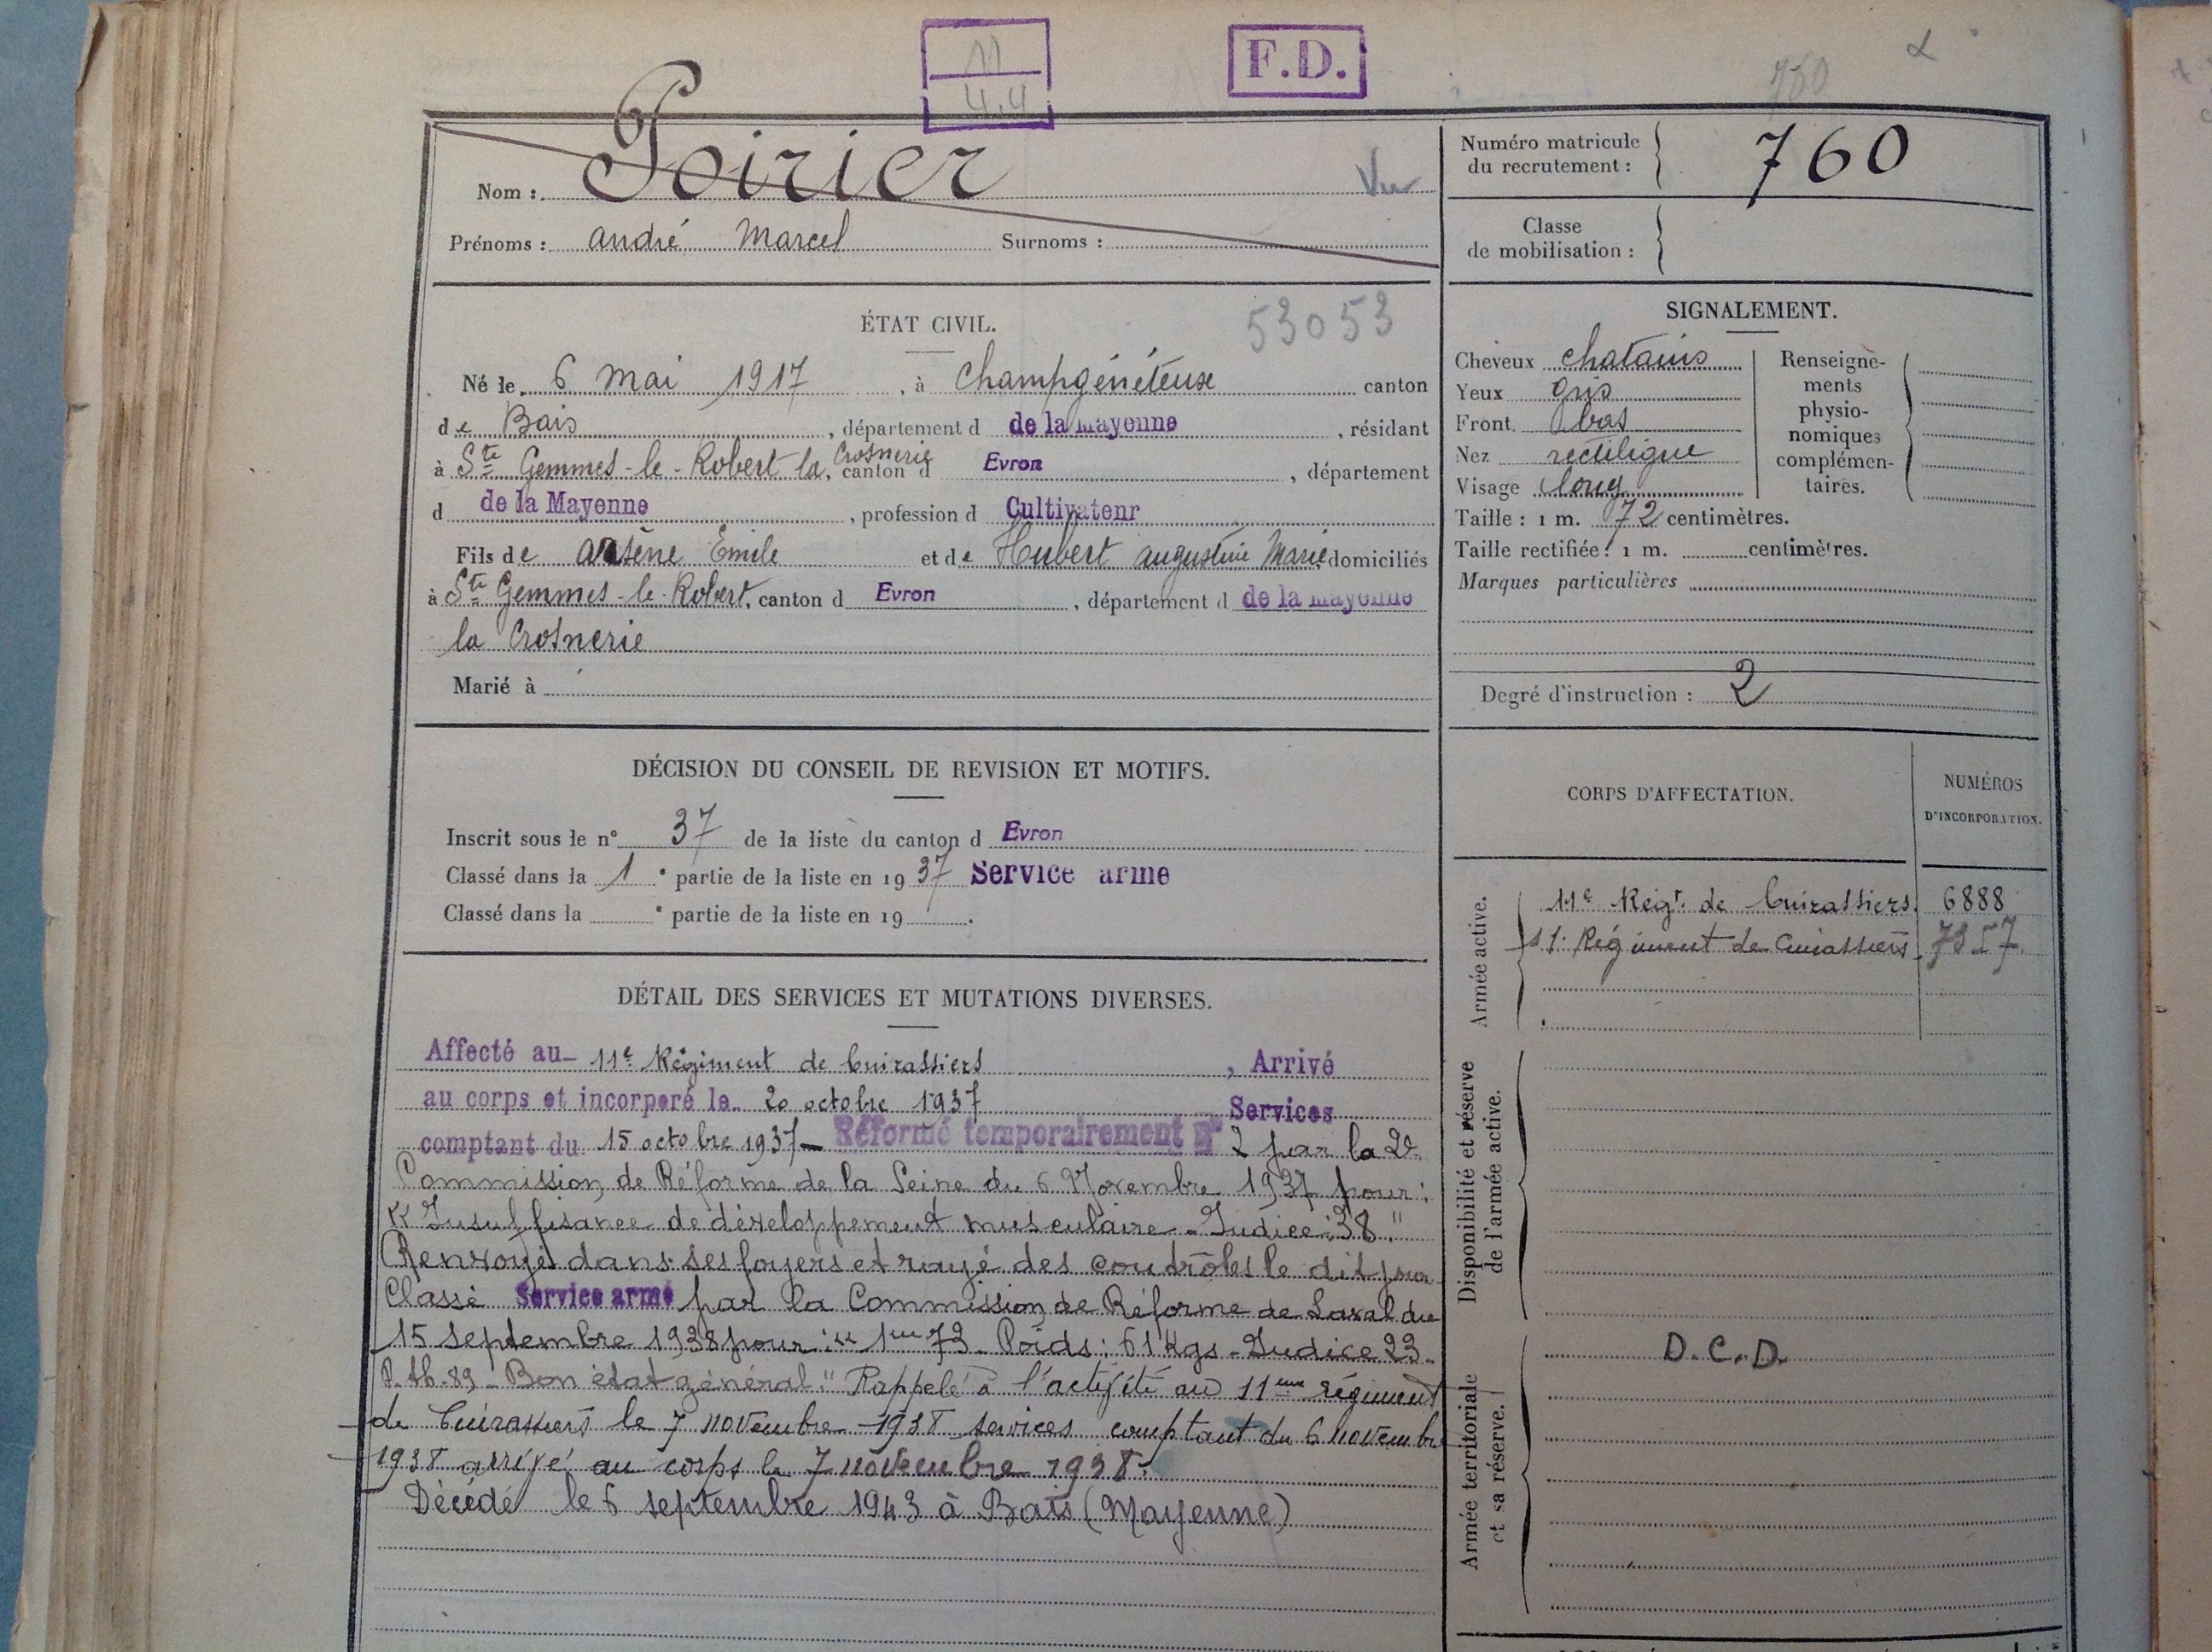 11
4.4
F.D.
760
Nom : Poirier Vu
Prénoms : andré Marcel Surnoms :
Numéro matricule
du recrutement : 760
Classe
de mobilisation :
ÉTAT CIVIL. 53053
Né le 6 Mai 1917, à Champgénéteux canton
de Bais, département d de la Mayenne, résidant
à Ste Gemmes-le-Robert la Crosnerie, canton d Evron, département
d de la Mayenne, profession d Cultivateur
Fils de Arsène Emile et de Hubert augustine Marie domiciliés
à Ste Gemmes-le-Robert, canton d Evron, département d de la Mayenne
la Crosnerie
Marié à
SIGNALEMENT.
Cheveux chatains
Yeux gris
Front bas
Nez rectiligne
Visage long
Renseigne-
ments
physio-
nomiques
complémen-
taires.
Taille : 1 m. 72 centimètres.
Taille rectifiée : 1 m. centimètres.
Marques particulières
Degré d'instruction : 2
DÉCISION DU CONSEIL DE REVISION ET MOTIFS.
Inscrit sous le n° 37 de la liste du canton d Evron
Classé dans la 1e partie de la liste en 1937 Service armé
Classé dans la e partie de la liste en 19 .
CORPS D'AFFECTATION.
NUMÉROS
D'INCORPORATION.
Armée active.
11e Regt. de Cuirassiers. 6888
11e Régiment de Cuirassiers
Disponibilité et réserve
de l'armée active.
Armée territoriale
et sa réserve.
D.C.D.
DÉTAIL DES SERVICES ET MUTATIONS DIVERSES.
Affecté au 11e Régiment de Cuirassiers, Arrivé
au corps et incorporé le 20 octobre 1937 Services
comptant du 15 octobre 1937 - Réformé temporairement N° 2 par la 2e
Commission de Réforme de la Seine du 6 Novembre 1937 pour :
"Insuffisance de développement musculaire - Indice : 38."
Renvoyé dans ses foyers et rayé des contrôles le dit jour
Classé Service armé par la Commission de Réforme de Laval du
15 septembre 1938 pour : "1m 73 - Poids : 61 Kgs - Indice 23 -
P. th. 89 - Bon état général." Rappelé à l'activité au 11eme régiment
de Cuirassiers le 7 novembre 1938 services comptant du 6 novembre
1938 arrivé au corps le 7 novembre 1938.
Décédé le 6 septembre 1943 à Bais (Mayenne)